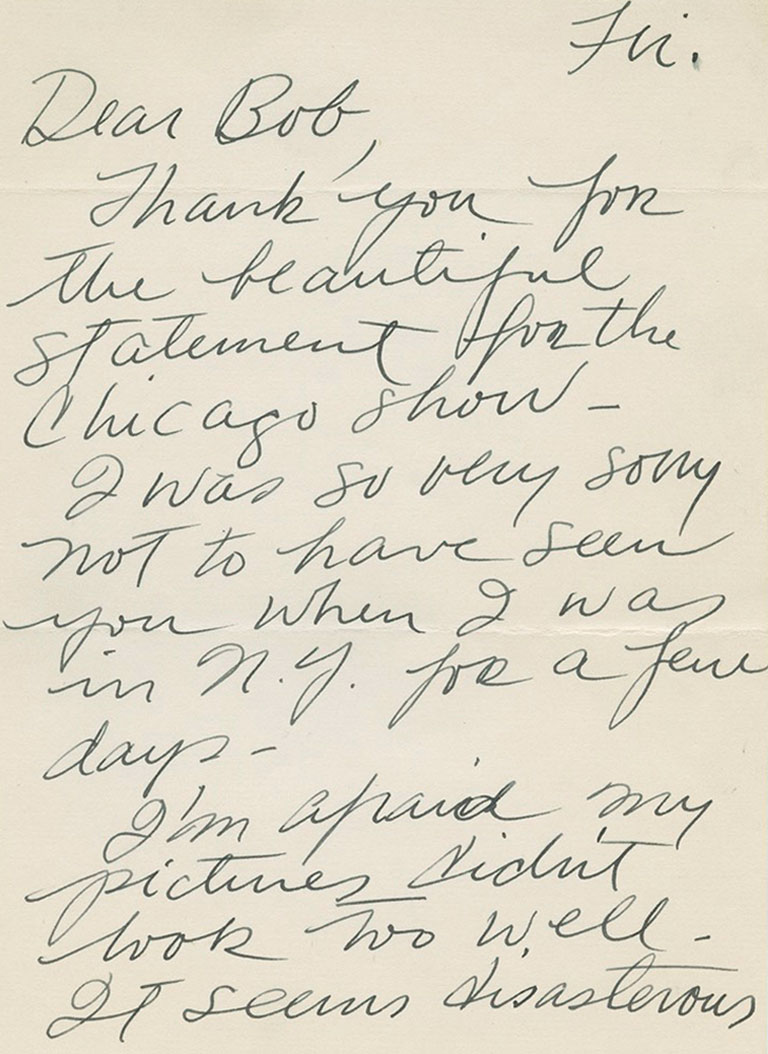 Fri.
Dear Bob,
Thank you for
the beautiful
statement for the
Chicago show –
I was so very sorry
not to have seen
you when I was
in N.Y. for a few
days –
I'm afraid my
pictures didn't
look too well –
It seems disasterous